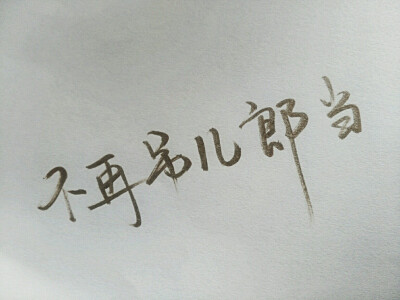 不再吊儿郎当